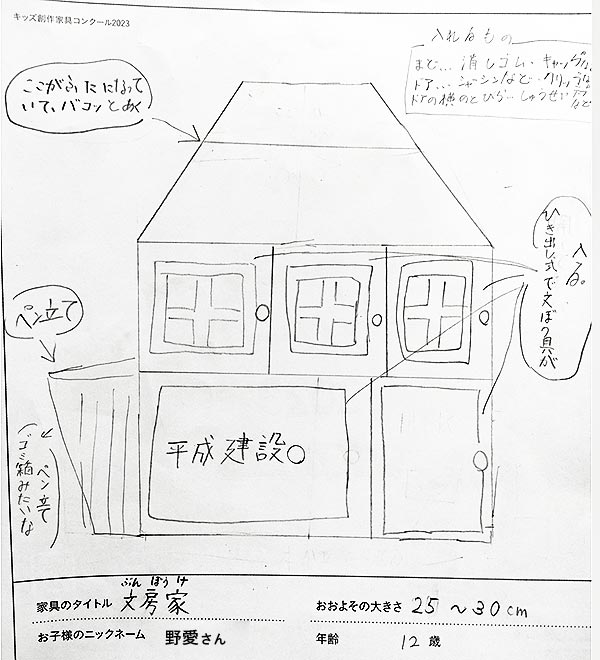 キッズ創作家具コンクール2023
入れるもの
まど… 消しゴム・キャップなど
ドア… シャシンなど・クリップなど
ドアの横のとびら… しゅうせいテープなど
ここがふたになって
いて、パコッとめく
ひき出し式で文ぼう具が
入る。
ペン立て
ペン立て
ゴミ箱みたいな
平成建設
ぶんぼうけ
家具のタイトル 文房家
おおよその大きさ 25～30cm
お子様のニックネーム 野愛さん
年齢 12歳